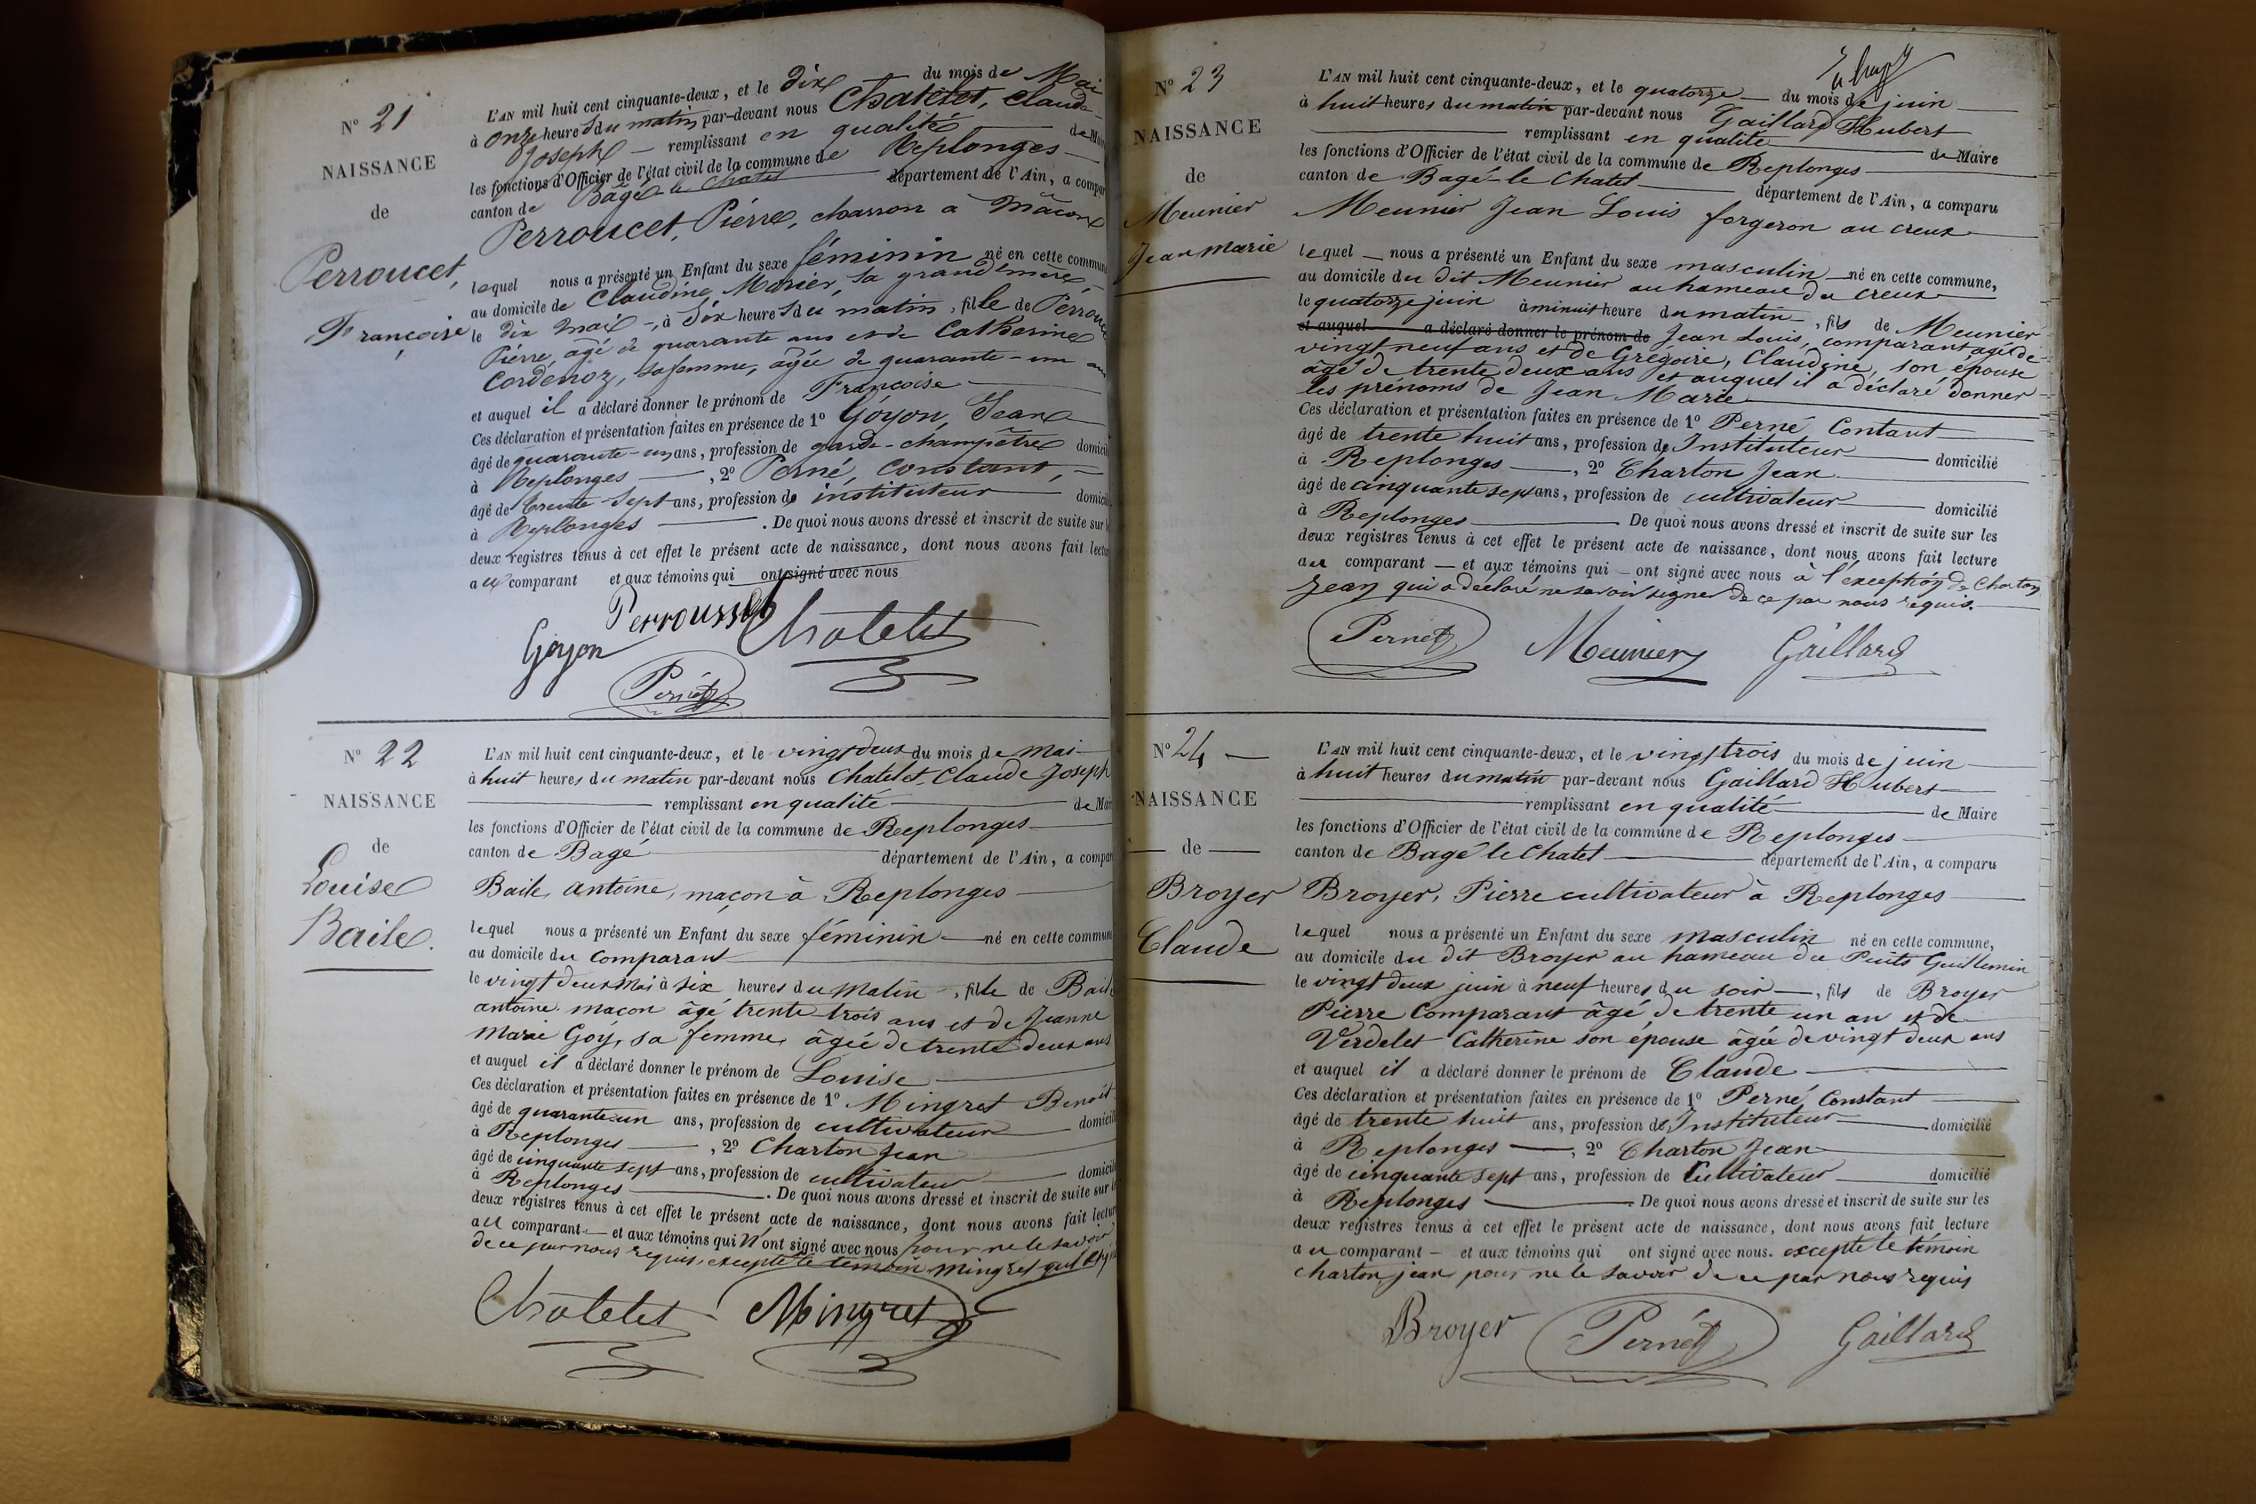 N° 21
NAISSANCE
de
Perroucet,
Françoise
L'AN mil huit cent cinquante-deux, et le dix du mois de Mai
à onze heures du matin par-devant nous Chatelet, Claude
Joseph — remplissant en qualité de Maire
les fonctions d'Officier de l'état civil de la commune de Replonges
canton de Bagé le Chatel département de l'Ain, a comparu
Perroucet, Piérre, charron à Mâcon
lequel nous a présenté un Enfant du sexe féminin né en cette commune
au domicile de Claudine Marier, sa grand'mère
le dix mai, à six heures du matin, fille de Perroucet
Piérre, âgé de quarante ans et de Catherine
Cordenoz, sa femme, âgée de quarante-un ans
et auquel il a déclaré donner le prénom de Françoise
Ces déclaration et présentation faites en présence de 1° Goyon, Jean
âgé de quarante-un ans, profession de garde-champêtre domicilié
à Replonges, 2° Perné, Constant,
âgé de trente-sept ans, profession de instituteur domicilié
à Replonges. De quoi nous avons dressé et inscrit de suite sur les
deux registres tenus à cet effet le présent acte de naissance, dont nous avons fait lecture
au comparant et aux témoins qui ont signé avec nous
Perrousset
Goyon
Chatelet
Pernét
N° 22
NAISSANCE
de
Louise
Baile.
L'AN mil huit cent cinquante-deux, et le vingt deux du mois de mai
à huit heures du matin par-devant nous Chatelet, Claude Joseph
remplissant en qualité de Maire
les fonctions d'Officier de l'état civil de la commune de Replonges
canton de Bagé département de l'Ain, a comparu
Baile, antoine, maçon à Replonges
lequel nous a présenté un Enfant du sexe féminin né en cette commune
au domicile du comparant
le vingt deux mai à six heures du matin, fille de Baile
antoine maçon âgé trente trois ans et de Jeanne
Marie Goy, sa femme, âgée de trente deux ans
et auquel il a déclaré donner le prénom de Louise
Ces déclaration et présentation faites en présence de 1° Mingret Benoît
âgé de quarante-un ans, profession de cultivateur domicilié
à Replonges, 2° Charton Jean
âgé de cinquante sept ans, profession de cultivateur domicilié
à Replonges. De quoi nous avons dressé et inscrit de suite sur les
deux registres tenus à cet effet le présent acte de naissance, dont nous avons fait lecture
au comparant — et aux témoins qui n'ont signé avec nous pour ne le savoir
de ce par nous requis, excepté le temoin Mingret qui
Chatelet Mingret
N° 23
NAISSANCE
de
Meunier
Jean Marie
L'AN mil huit cent cinquante-deux, et le quatorze du mois de juin
à huit heures du matin par-devant nous Gaillard Hubert
remplissant en qualité de Maire
les fonctions d'Officier de l'état civil de la commune de Replonges
canton de Bagé-le Chatel département de l'Ain, a comparu
Meunier Jean Louis forgeron au creux
lequel nous a présenté un Enfant du sexe masculin né en cette commune,
au domicile du dit Meunier au hameau du creux
le quatorze juin à minuit heure du matin, fils de Meunier
et auquel a déclaré donner le prénom de Jean Louis, comparant agé de
vingt neuf ans et de Grégoire, Claudine, son épouse
âgé de trente deux ans et auquel il a déclaré donner
les prénoms de Jean Marie
Ces déclaration et présentation faites en présence de 1° Perné Contant
âgé de trente huit ans, profession de Instituteur domicilié
à Replonges, 2° Charton Jean
âgé de cinquante sept ans, profession de cultivateur domicilié
à Replonges De quoi nous avons dressé et inscrit de suite sur les
deux registres tenus à cet effet le présent acte de naissance, dont nous avons fait lecture
au comparant — et aux témoins qui — ont signé avec nous à l'exception de Charton
Jean qui a déclaré ne savoir signer de ce par nous requis.
Pernet Meunier Gaillard
N° 24
NAISSANCE
de
Broyer
Claude
L'AN mil huit cent cinquante-deux, et le vingt trois du mois de juin
à huit heures du matin par-devant nous Gaillard Hubert
remplissant en qualité de Maire
les fonctions d'Officier de l'état civil de la commune de Replonges
canton de Bagé le Chatel département de l'Ain, a comparu
Broyer, Pierre cultivateur à Replonges
lequel nous a présenté un Enfant du sexe masculin né en cette commune,
au domicile du dit Broyer au hameau du Puits Guillemin
le vingt deux juin à neuf heures du soir, fils de Broyer
Pierre Comparant âgé de trente un an et de
Verdelet Catherine son épouse âgée de vingt deux ans
et auquel il a déclaré donner le prénom de Claude
Ces déclaration et présentation faites en présence de 1° Perné Constant
âgé de trente huit ans, profession de Instituteur domicilié
à Replonges, 2° Charton Jean
âgé de cinquante sept ans, profession de Cultivateur domicilié
à Replonges De quoi nous avons dressé et inscrit de suite sur les
deux registres tenus à cet effet le présent acte de naissance, dont nous avons fait lecture
au comparant — et aux témoins qui ont signé avec nous. excepté le témoin
charton jean pour ne le savoir de ce par nous requis
Broyer Pernét Gaillard